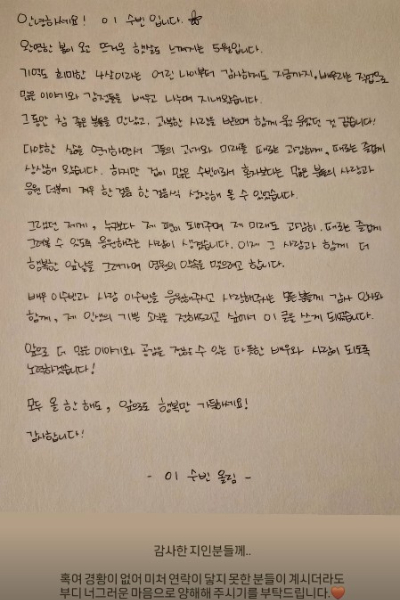 안녕하세요! 이수빈 입니다.
완연한 봄이 오고 뜨거운 햇살도 느껴지는 5월입니다.
기억도 희미한 4살이라는 어린 나이부터 감사하게도 지금까지, 배우라는 직업으로
많은 이야기와 감정들을 배우고 나누며 지내왔습니다.
그동안 참 좋은 분들을 만나고, 고분한 사랑을 받으며 함께 웃고 울었던 것 같습니다!
다양한 삶을 연기하면서 그들의 고뇌와 미래를 때로는 고심하게, 때로는 즐겁게
상상해 왔습니다. 하지만 겁이 많은 수빈이라서 혼자보다는 많은 분들의 사랑과
응원 덕분에 겨우 한 걸음 한 걸음씩 성장해 올 수 있었습니다.
그랬던 제게, 누구보다 제 편이 되어주며 저 미래도 고심히, 때로는 즐겁게
그려볼 수 있도록 응원해주는 사람이 생겼습니다. 이제 그 사람과 함께 더
행복한 앞날을 그려가며 영원의 약속을 맺으려고 합니다.
배우 이수빈과 사람 이수빈을 응원해주고 사랑해주시는 모든 분들께 감사 인사와
함께, 제 인생의 기쁜 소식을 전해드리고 싶어서 이 글을 쓰게 되었습니다.
앞으로 더 많은 이야기와 공감을 전할 수 있는 따뜻한 배우와 사람이 되도록
노력하겠습니다!
모두 올 한 해도, 앞으로도 행복만 가득하세요!
감사합니다!
- 이 수빈 올림 -
감사한 지인분들께..
혹여 경황이 없어 미처 연락이 닿지 못한 분들이 계시더라도
부디 너그러운 마음으로 양해해 주시기를 부탁드립니다.🧡